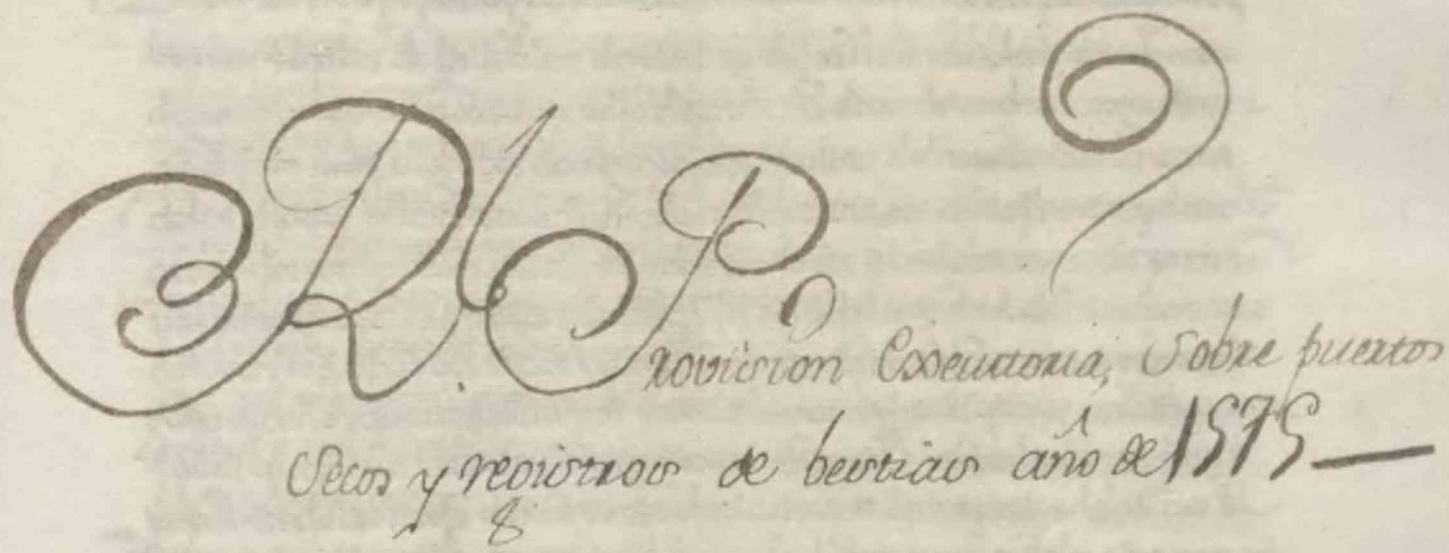 R. Provission Executoria, Sobre puertos
Secos y registros de bestias año de 1575
8